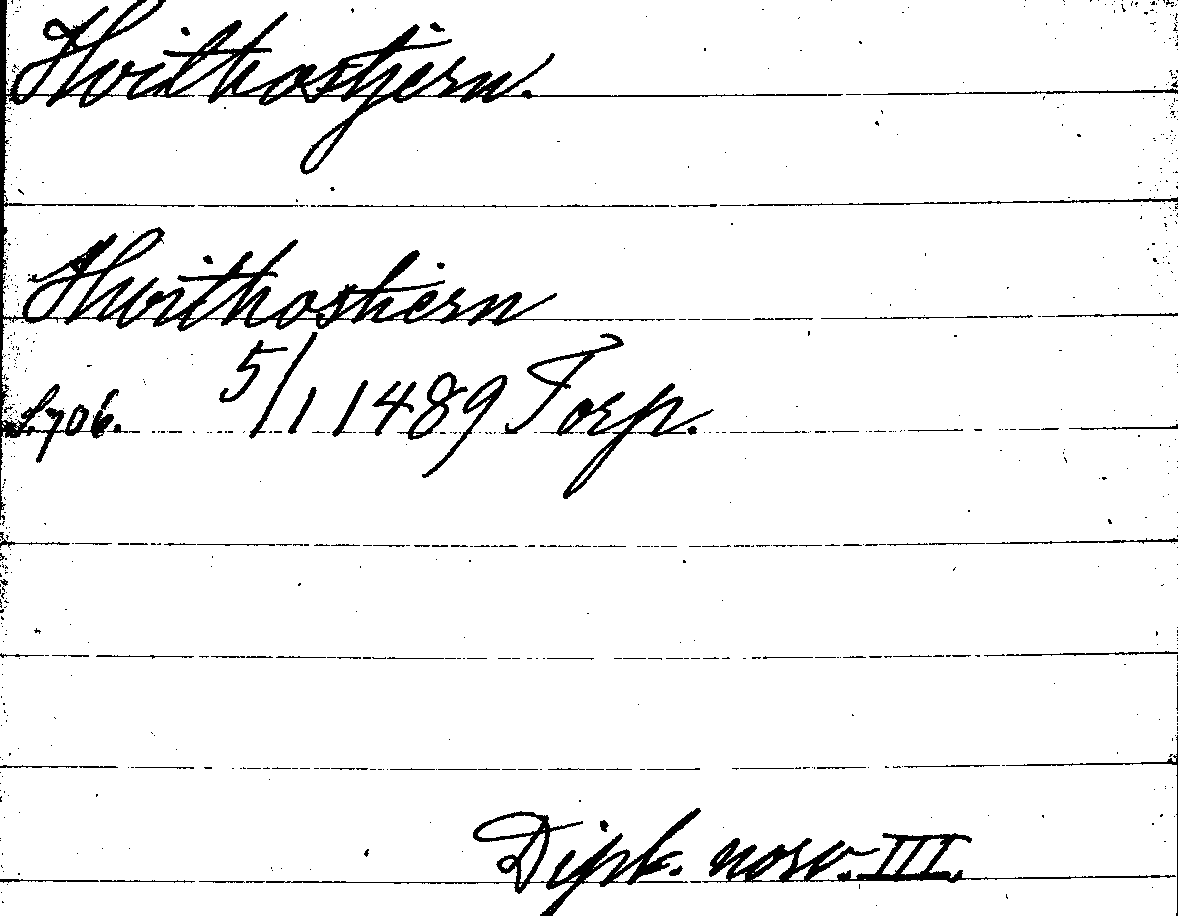 Hvithostjern.
Hwithostiern
S. 706. 5/1 1489 Torp.
Dipl. norv. III.